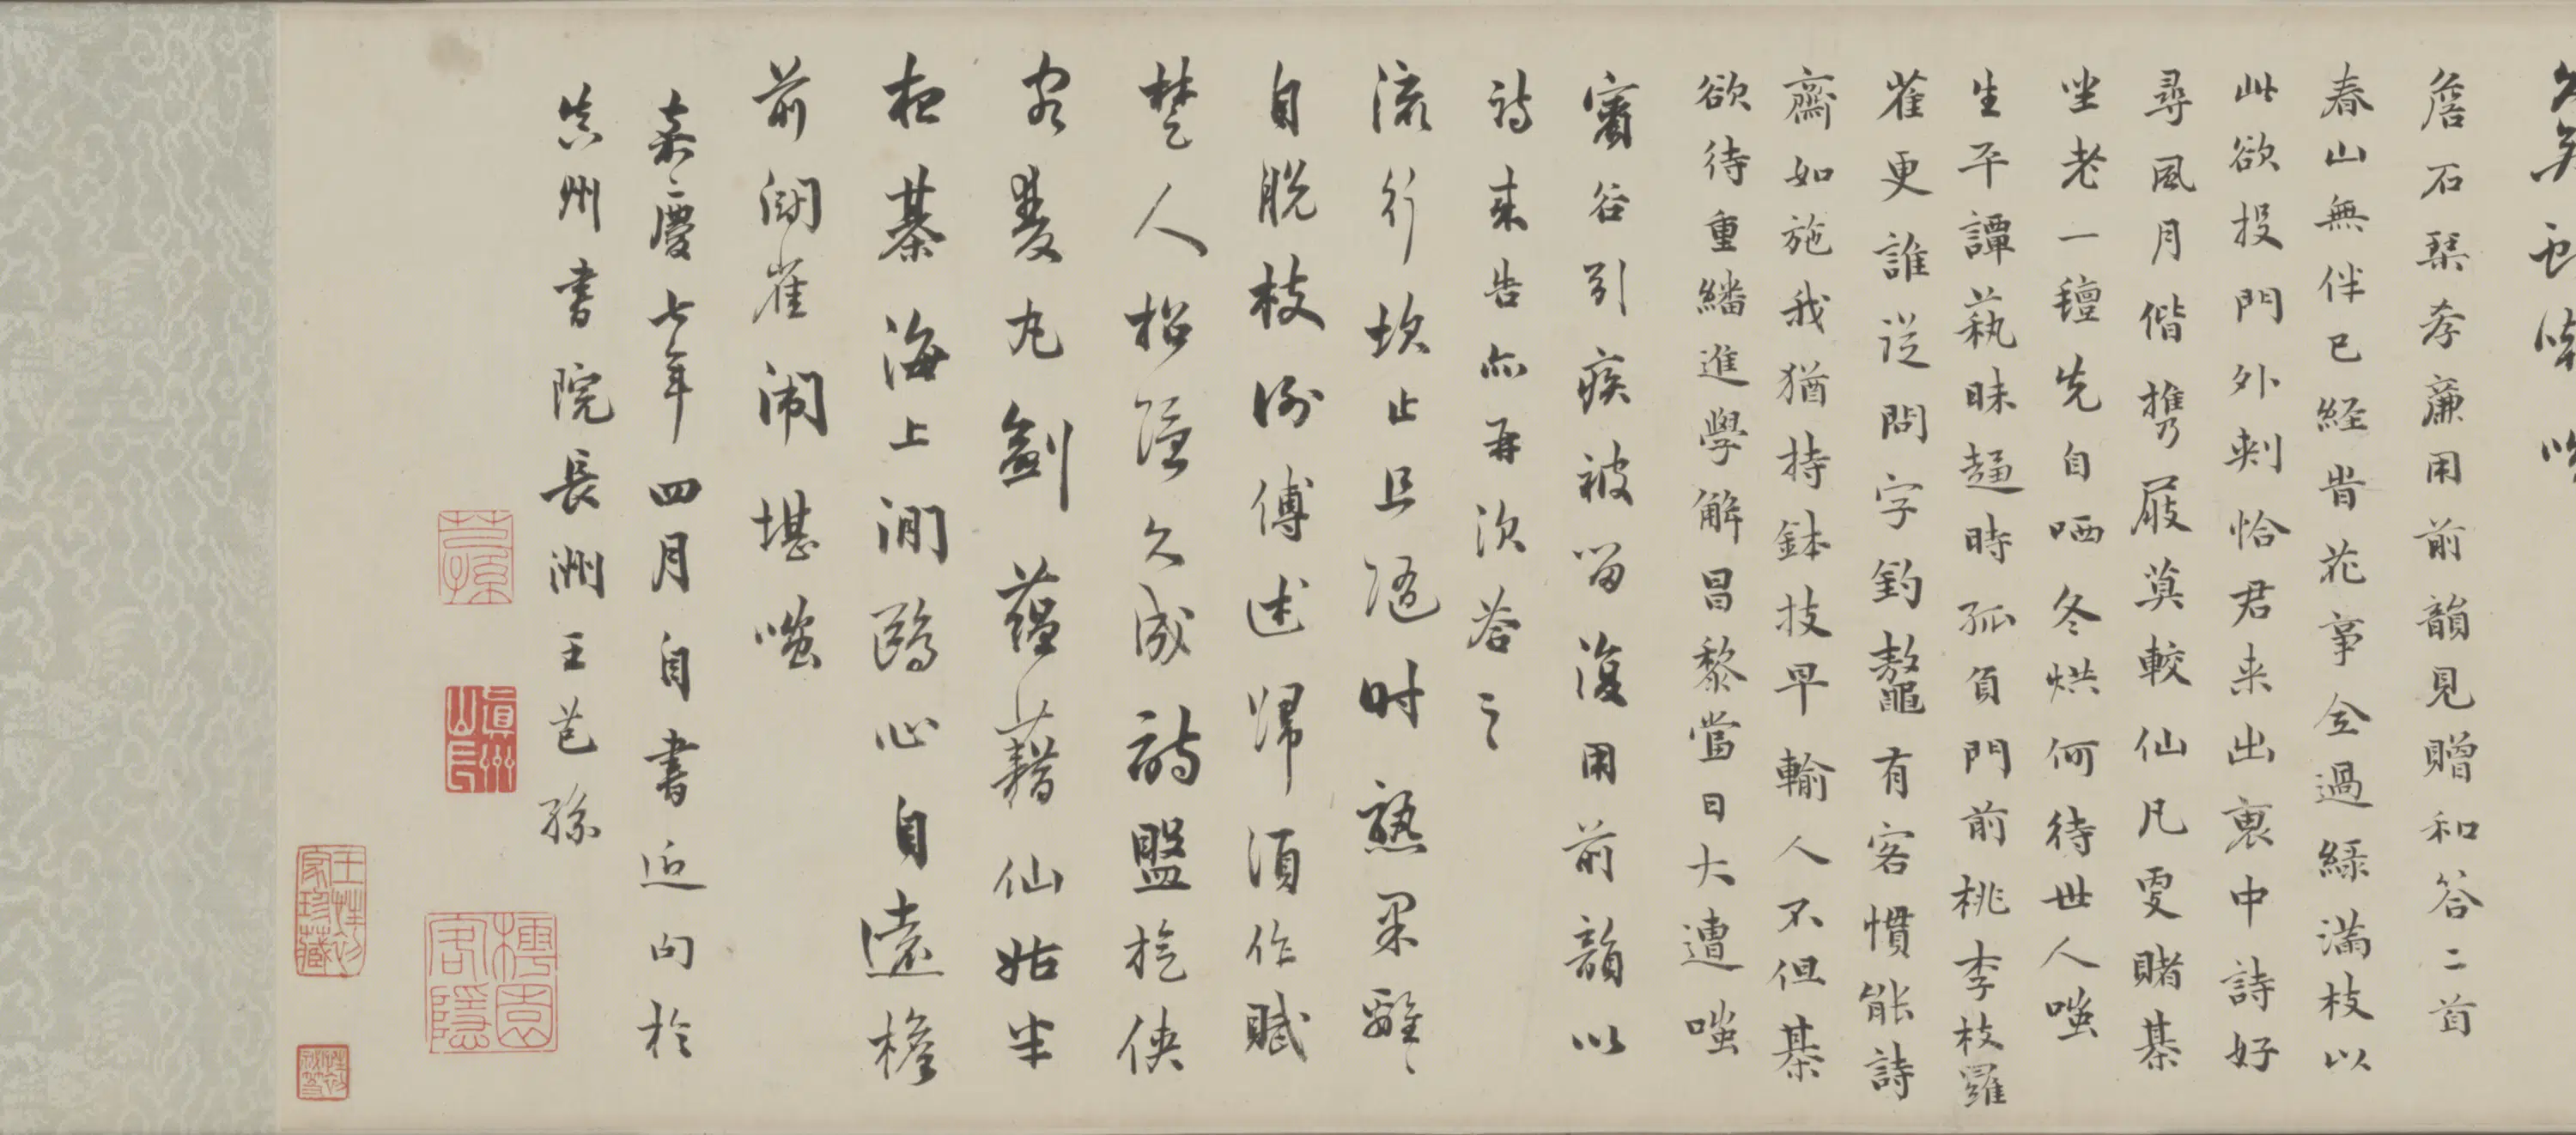 詹石琴孝廉用前韻見贈和答二首
春山無伴已經昔花事全過綠滿枝以
此欲投門外刺恰君來出裏中詩好
尋風月偕攜屐莫較仙凡雯賭棊
坐老一氈先自哂冬烘何待世人嗤
生平譚萟昧趨時孤負門前桃李枝羅
雀更誰從問字釣鼇有客慣能詩
齋如施我猶持鉢技早輸人不但棊
欲待重繙進學解昌黎當日大遭嗤
賓谷引疾被留復用前韻以
詩來告亦再次答之
流行坎止且隨时熟果難
自脫枝倒傅述歸須作賦
楚人招隱久成詩盤拖俠
客雙丸劍蘊藉仙姑半
枰棊海上閒鷗心自遠檐
前闘雀鬧堪嗤
嘉慶七年四月自書近句於
真州書院長洲王芑孫
芑孫
真州山長
樗園客隱
王惺初家珍藏